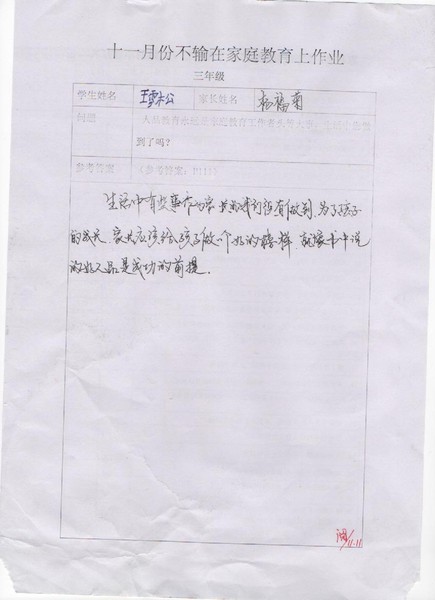 十一月份不输在家庭教育上作业
三年级
学生姓名 家长姓名 杨福菊
问题 人品教育永远是家庭教育工作者头等大事,生活中您做
到了吗?
参考答案 (参考答案:P111)
生活中有些事作为家长的我们没有做到,为了孩子
的成长,家长应该给孩子做一个好的榜样,就像书中说
的好人品是成功的前提。
11.11